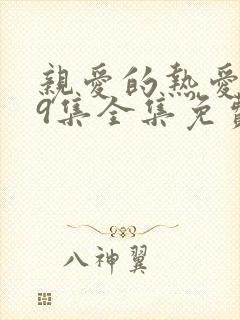 親愛的熱愛
9集全集免費
八神翼